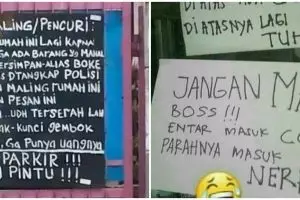 MALING/PENCURI:
RUMAH INI LAGI KAPNA
GA ADA BARANG YG MAHAL
TERSIMPAN-ALIAS BOKE
DTANGKAP POLISI
MALING RUMAH INI
PESAN INI
..UDH TERSERAH LAH
-KUNCI GEMBOK
, GA PUNYA UANGNYA
PARKIR !!!
PINTU !!!
DIATAS
DIATASNYA LAGI
TUH
JANGAN MA
BOSS !!!
ENTAR MASUK
PARAHNYA MASUK
NER